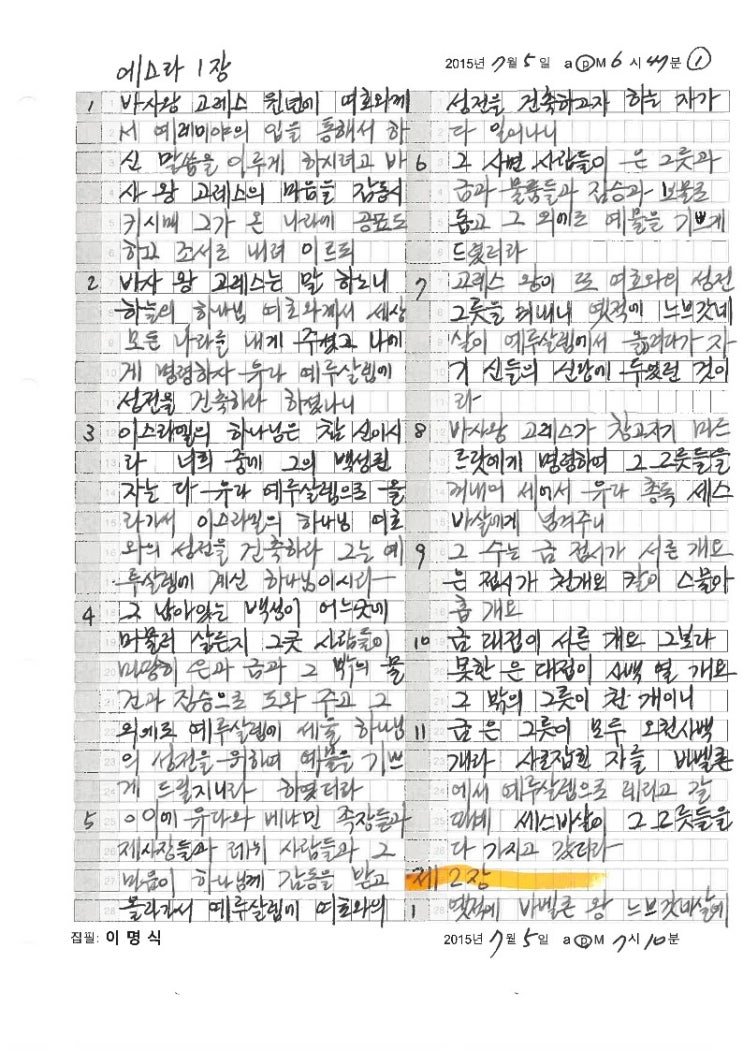 에스라 1장
2015년 7월 5일 a p M 6시 47분 ①
1 바사왕 고레스 원년에 여호와께
서 예레미야의 입을 통해서 하
신 말씀을 이루게 하시려고 바
사 왕 고레스의 마음을 감동시
키시매 그가 온 나라에 공포도
하고 조서로 내려 이르되
2 바사 왕 고레스는 말 하노니
하늘의 하나님 여호와께서 세상
모든 나라를 내게 주셨고 나에
게 명령하사 유다 예루살렘에
성전을 건축하라 하셨나니
3 이스라엘의 하나님은 참 신이시
라 너희 중에 그의 백성된
자는 다 유다 예루살렘으로 올
라가서 이스라엘의 하나님 여호
와의 성전을 건축하라 그는 예
루살렘에 계신 하나님이시라
4 그 남아있는 백성이 어느곳에
머물러 살든지 그곳 사람들이
마땅히 은과 금과 그 밖의 물
건과 짐승으로 도와 주고 그
외에로 예루살렘에 세울 하나님
의 성전을 위하여 예물을 기쁘
게 드릴지니라 하였더라
5 이에 유다와 베냐민 족장들과
제사장들과 레위 사람들과 그
마음이 하나님께 감동을 받고
올라가서 예루살렘에 여호와의
성전을 건축하고자 하는 자가
다 일어나니
6 그 사면 사람들이 은 그릇과
금과 물품들과 짐승과 보물로
돕고 그 외에로 예물을 기쁘게
드렸더라
7 고레스 왕이 또 여호와의 성전
그릇을 꺼내니 옛적에 느브갓네
살이 예루살렘에서 옮겨다가 자
기 신들의 신당에 두었던 것이
라
8 바사왕 고레스가 창고지기 미드
르닷에게 명령하여 그 그릇들을
꺼내어 세어서 유다 총독 세스
바살에게 넘겨주니
9 그 수는 금 접시가 서른 개요
은 접시가 천개요 칼이 스물아
홉 개요
10 금 대접이 서른 개요 그보다
못한 은 대접이 사백 열 개요
그 밖의 그릇이 천 개이니
11 금 은 그릇이 모두 오천사백
개라 사로잡힌 자를 바벨론
에서 예루살렘으로 데리고 갈
때에 세스바살이 그 그릇들을
다 가지고 갔더라
제 2장
1 옛적에 바벨론 왕 느브갓네살에
집필: 이 명 식
2015년 7월 5일 a p M 7시 10분